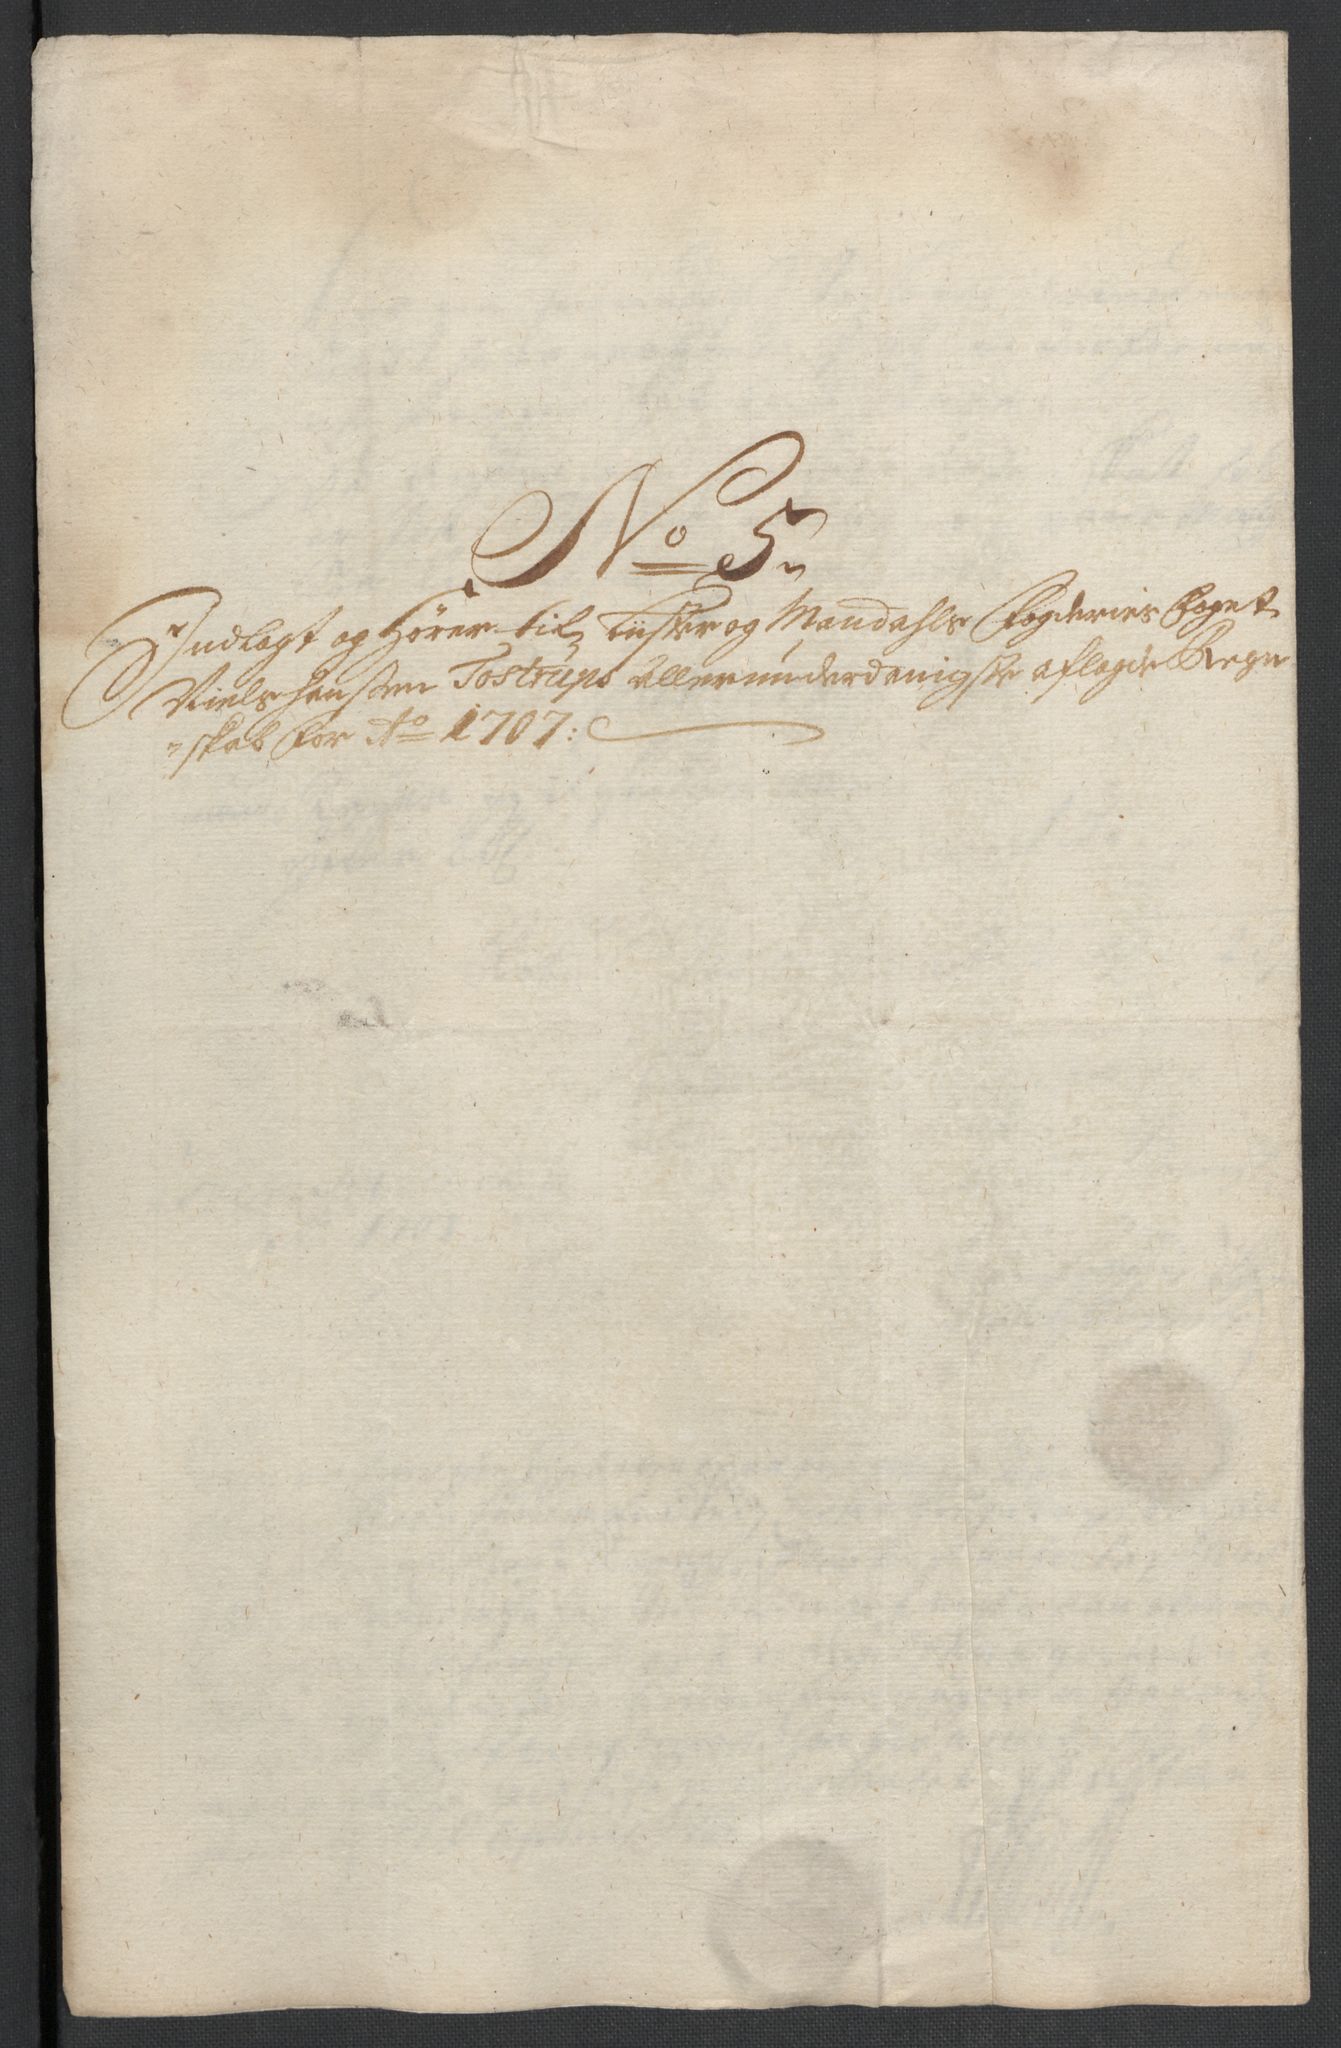 No 5.
Indlagt og Hörer til Lister og Mandahls Fogderies Foget
Niels Hanssen Tostrups Allerunderdanigste aflagde Regn
=skab for Ao 1707: